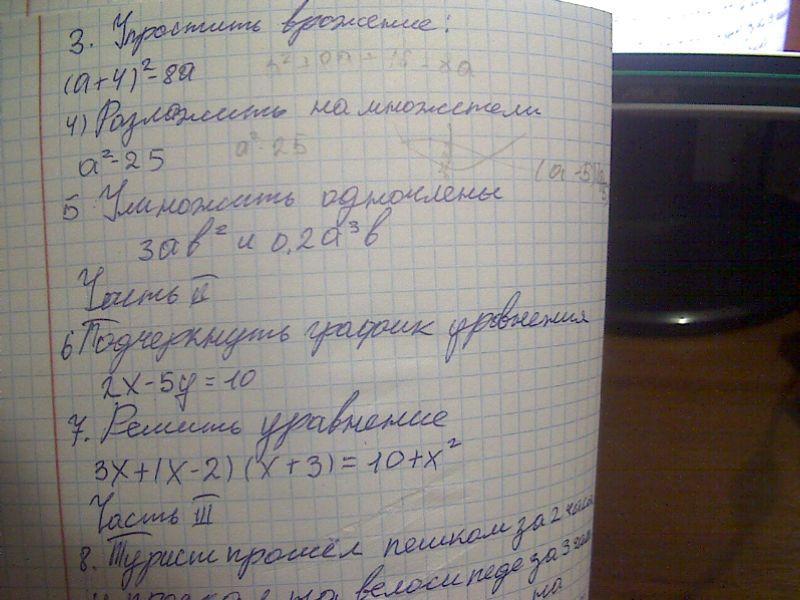 3. Упростить врожение:
(a+4)²-8a
4) Разложить на множетели
a²-25
a²-25
(a-5)
5 Умножить одночлены
3ab² и 0,2a³b
Часть II
6 Подчеркнуть график уровнения
2x-5y=10
7. Решить уравнение
3x+(x-2)(x+3)=10+x²
Часть III
8. Турист прошёл пешком за 2 часа
велосипеде за 3
на